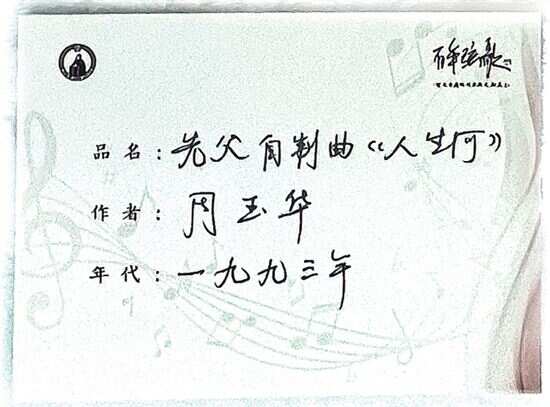 百年弦歌
品名：先父自制曲《人生何》
作者：周玉华
年代：一九九三年